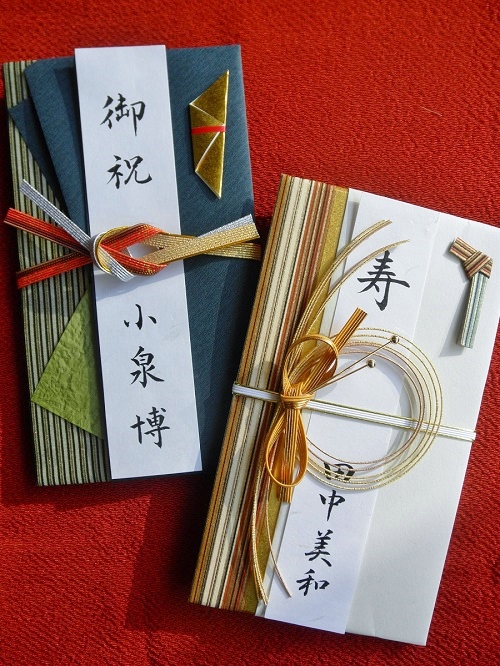 御祝
小泉博
寿
田中美和